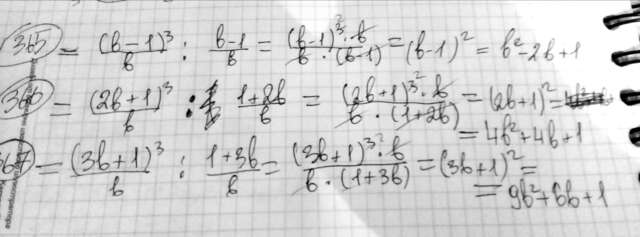 365 = (b-1)³/b : b-1/b = (b-1)³² · b / b · (b-1) = (b-1)² = b²-2b+1
366 = (2b+1)³/b : 1+2b/b = (2b+1)³² · b / b · (1+2b) = (2b+1)² =
= 4b²+4b+1
367 = (3b+1)³/b : 1+3b/b = (3b+1)³² · b / b · (1+3b) = (3b+1)² =
= 9b²+6b+1